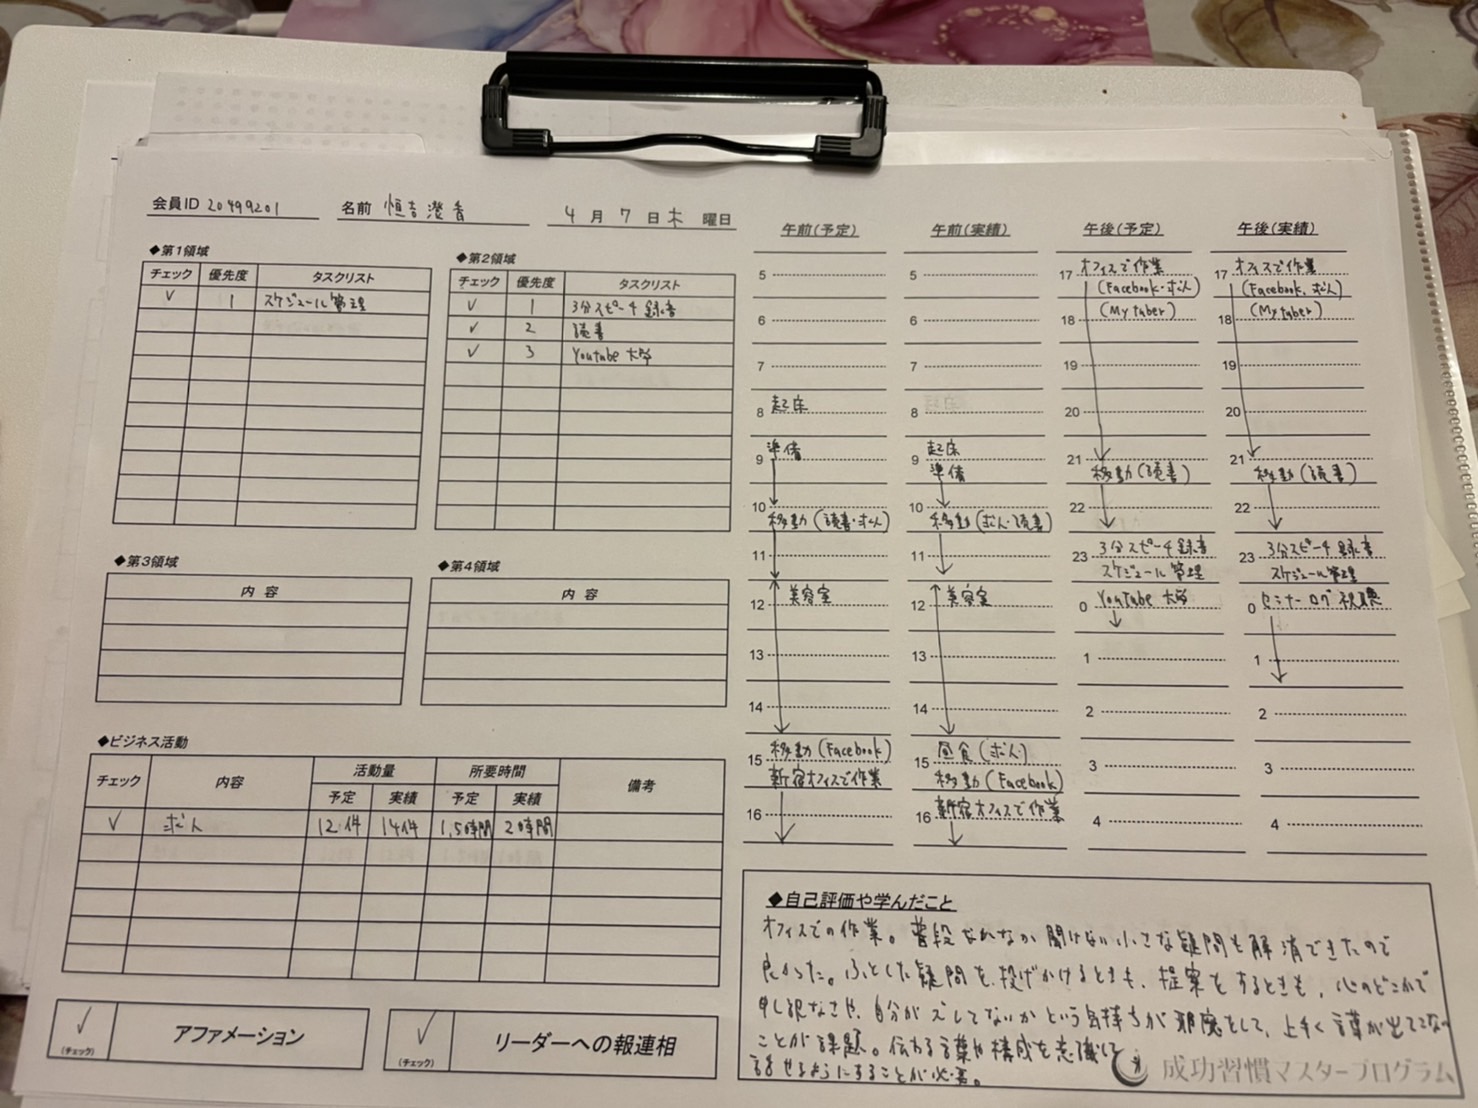 会員ID 20499201 名前 恒吉澄香 4月7日木曜日
◆第1領域
チェック 優先度 タスクリスト
✓ 1 スケジュール管理
◆第2領域
チェック 優先度 タスクリスト
✓ 1 3分スピーチ録音
✓ 2 読書
✓ 3 Youtube大学
◆第3領域
内 容
◆第4領域
内 容
◆ビジネス活動
チェック 内容 活動量 所要時間 備考
予定 実績 予定 実績
✓ 求人 12件 14件 1.5時間 2時間
✓ (チェック) アファメーション
✓ (チェック) リーダーへの報連相
午前(予定)
5
6
7
8 起床
9 準備
10
移動(読書・求人)
11
12 美容室
13
14
15 移動(Facebook)
新宿オフィスで作業
16
午前(実績)
5
6
7
8
9 起床
準備
10
移動(求人・読書)
11
12 美容室
13
14
15 昼食(求人)
移動(Facebook)
16 新宿オフィスで作業
午後(予定)
17 オフィスで作業
(Facebook・求人)
18 (My taber)
19
20
21
移動(読書)
22
23 3分スピーチ録音
スケジュール管理
0 Youtube大学
1
2
3
4
午後(実績)
17 オフィスで作業
(Facebook、求人)
18 (My taber)
19
20
21
移動(読書)
22
23 3分スピーチ録音
スケジュール管理
0 セミナーログ視聴
1
2
3
4
◆自己評価や学んだこと
オフィスでの作業。普段なかなか聞けない小さな疑問も解消できたので
良かった。ふとした疑問を投げかけるときも、提案をするときも、心のどこかで
申し訳なさや、自分がズレてないかという気持ちが邪魔をして、上手く言葉が出てこない
ことが課題。伝わる言葉や構成を意識して
話せるようにすることが必要。
成功習慣マスタープログラム